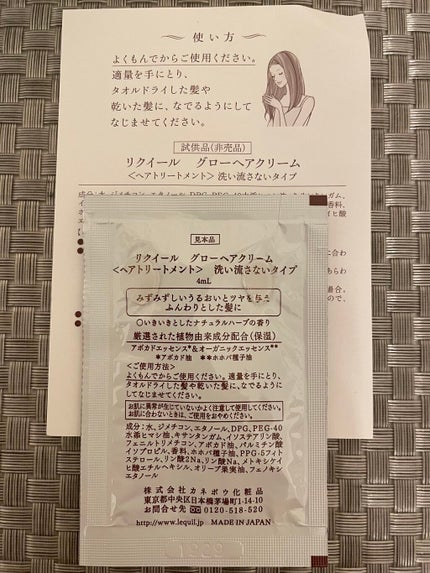 使い方
よくもんでからご使用ください。
適量を手にとり、
タオルドライした髪や
乾いた髪に、なでるようにして
なじませてください。
試供品(非売品)
リクイール グローヘアクリーム
<ヘアトリートメント> 洗い流さないタイプ
見本品
リクイール グローヘアクリーム
<ヘアトリートメント> 洗い流さないタイプ
4mL
みずみずしいうるおいとツヤを与え
ふんわりとした髪に
○いきいきとしたナチュラルハーブの香り
厳選された植物由来成分配合(保湿)
アボカドエッセンス*&オーガニックエッセンス**
*アボカド油 **ホホバ種子油
<ご使用方法>
よくもんでからご使用ください。適量を手にとり、
タオルドライした髪や乾いた髪に、なでるようにし
てなじませてください。
お肌に異常が生じていないかよく注意して使用してください。
お肌に合わないときは、ご使用をおやめください。
成分:水、ジメチコン、エタノール、DPG、PEG-40
水添ヒマシ油、キサンタンガム、イソステアリン酸、
フェニルトリメチコン、アボカド油、パルミチン酸
イソプロピル、香料、ホホバ種子油、PPG-5フィト
ステロール、リン酸2Na、リン酸Na、メトキシケイ
ヒ酸エチルヘキシル、オリーブ果実油、フェノキシ
エタノール
株式会社カネボウ化粧品
東京都中央区日本橋茅場町1-14-10
お問合せ先 0120-518-520
http://www.lequil.jp MADE IN JAPAN